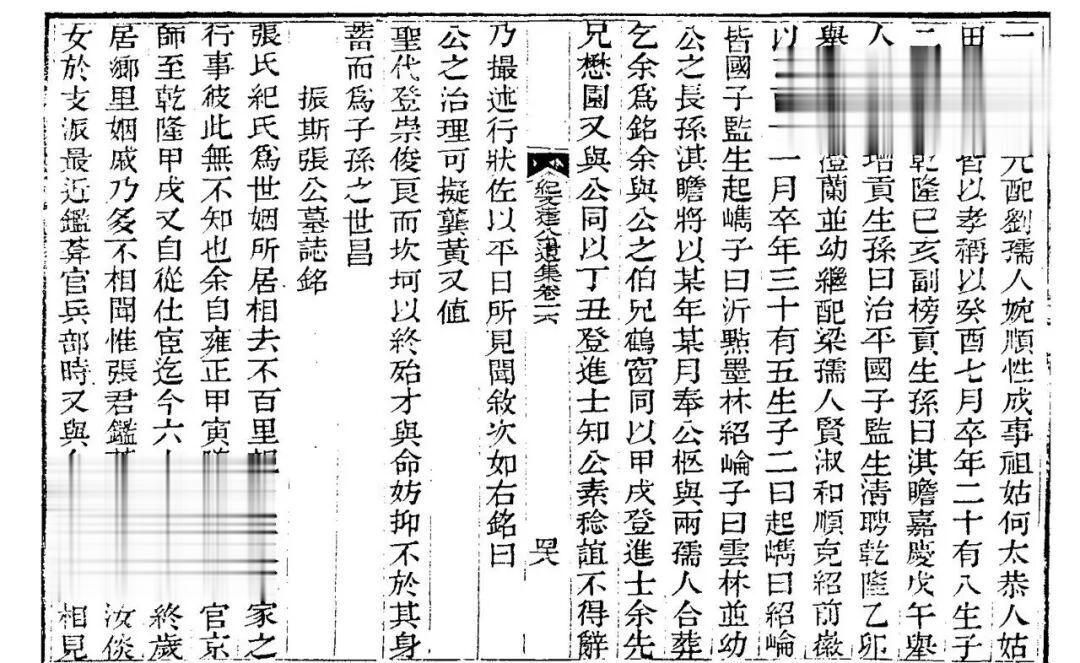 一 元配劉孺人婉順性成事祖姑何太恭人姑
田 皆以孝稱以癸酉七月卒年二十有八生子
二 乾隆已亥副榜貢生孫曰淇瞻嘉慶戊午舉
人 培貢生孫曰治平國子監生淸聘乾隆乙卯
舉 澄蘭並幼繼配梁孺人賢淑和順克紹前徽
以 一月卒年三十有五生子二曰起嶲曰紹崘
皆國子監生起嶲子曰沂點墨林紹崘子曰雲林並幼
公之長孫淇瞻將以某年某月奉公柩與兩孺人合葬
乞余爲銘余與公之伯兄鶴窗同以甲戌登進士余先
兄懋園又與公同以丁丑登進士知公素稔誼不得辭
紀文達公遺集卷十六
乃撮述行狀佐以平日所見聞敘次如右銘曰
公之治理可擬龔黃又值
聖代登崇俊良而坎坷以終殆才與命妨抑不於其身
蓄而爲子孫之世昌
振斯張公墓誌銘
張氏紀氏爲世姻所居相去不百里 家之
行事彼此無不知也余自雍正甲寅 官京
師至乾隆甲戌又自從仕宦迄今六 終歲
居鄉里姻戚乃多不相聞惟張君鑑 汝倓
女於支派最近鑑莽官兵部時又與 相見